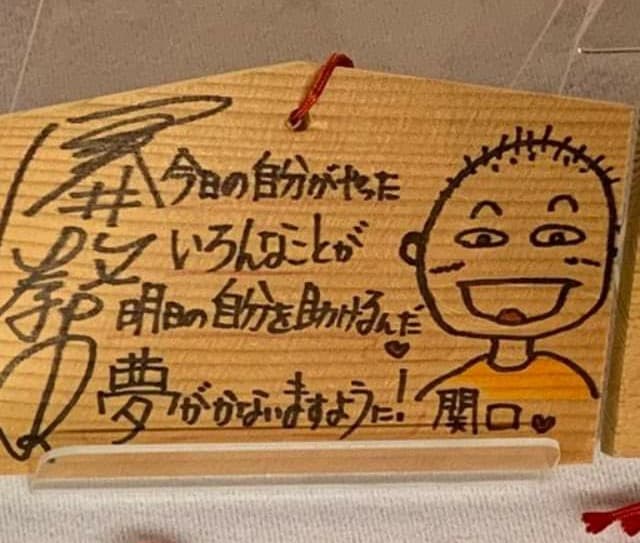 今日の自分がやった
いろんなことが
明日の自分を助けるんだ
夢がかないますように!
関口